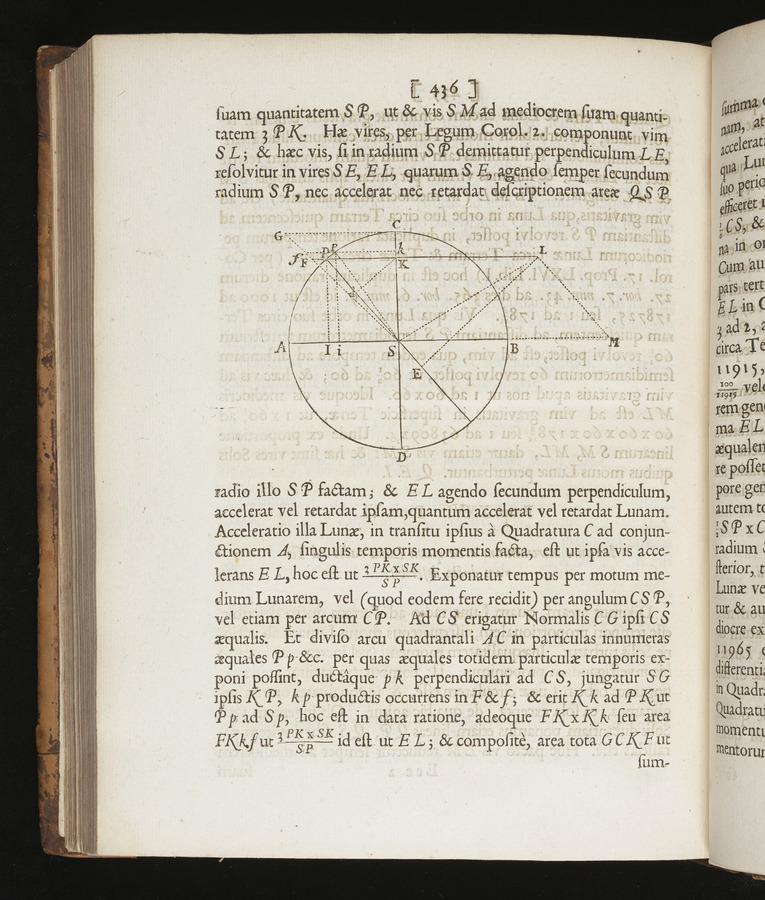 [ 436 ]
ſuam quantitatem S P, ut & vis S M ad mediocrem ſuam quanti-
tatem 3 P K. Hæ vires, per Legum Corol. 2. componunt vim
S L; & hæc vis, ſi in radium S P demittatur perpendiculum L E,
reſolvitur in vires S E, E L, quarum S E, agendo ſemper ſecundum
radium S P, nec accelerat nec retardat deſcriptionem areæ Q S P
G
C
f
F
P
p
k
K
L
A
I
i
S
B
M
E
D
radio illo S P factam; & E L agendo ſecundum perpendiculum,
accelerat vel retardat ipſam, quantum accelerat vel retardat Lunam.
Acceleratio illa Lunæ, in tranſitu ipſius à Quadratura C ad conjun-
ctionem A, ſingulis temporis momentis facta, eſt ut ipſa vis acce-
lerans E L, hoc eſt ut 3 P K x S K / S P. Exponatur tempus per motum me-
dium Lunarem, vel (quod eodem fere recidit) per angulum C S P,
vel etiam per arcum C P. Ad C S erigatur Normalis C G ipſi C S
æqualis. Et diviſo arcu quadrantali A C in particulas innumeras
æquales P p &c. per quas æquales totidem particulæ temporis ex-
poni poſſint, ductâque p k perpendiculari ad C S, jungatur S G
ipſis K P, k p productis occurrens in F & f; & erit K k ad P K ut
P p ad S p, hoc eſt in data ratione, adeoque F K x K k ſeu area
F K k f ut 3 P K x S K / S P id eſt ut E L; & compoſitè, area tota G C K F ut
ſum-
ſumma
nam, at
accelerat
qua Lun
ſuo perio
efficeret
C S, &
na in or
Cum au
pars tert
E L in C
3 ad 2, a
circa Te
11915,
100/11915 velo
rem gen
ma E L
æqualem
re poſſet
pore gen
autem to
S P x C
radium
ſterior, t
Lunæ ve
tur & au
diocre ex
11965
differenti
in Quadr
Quadratu
momentu
mentorum